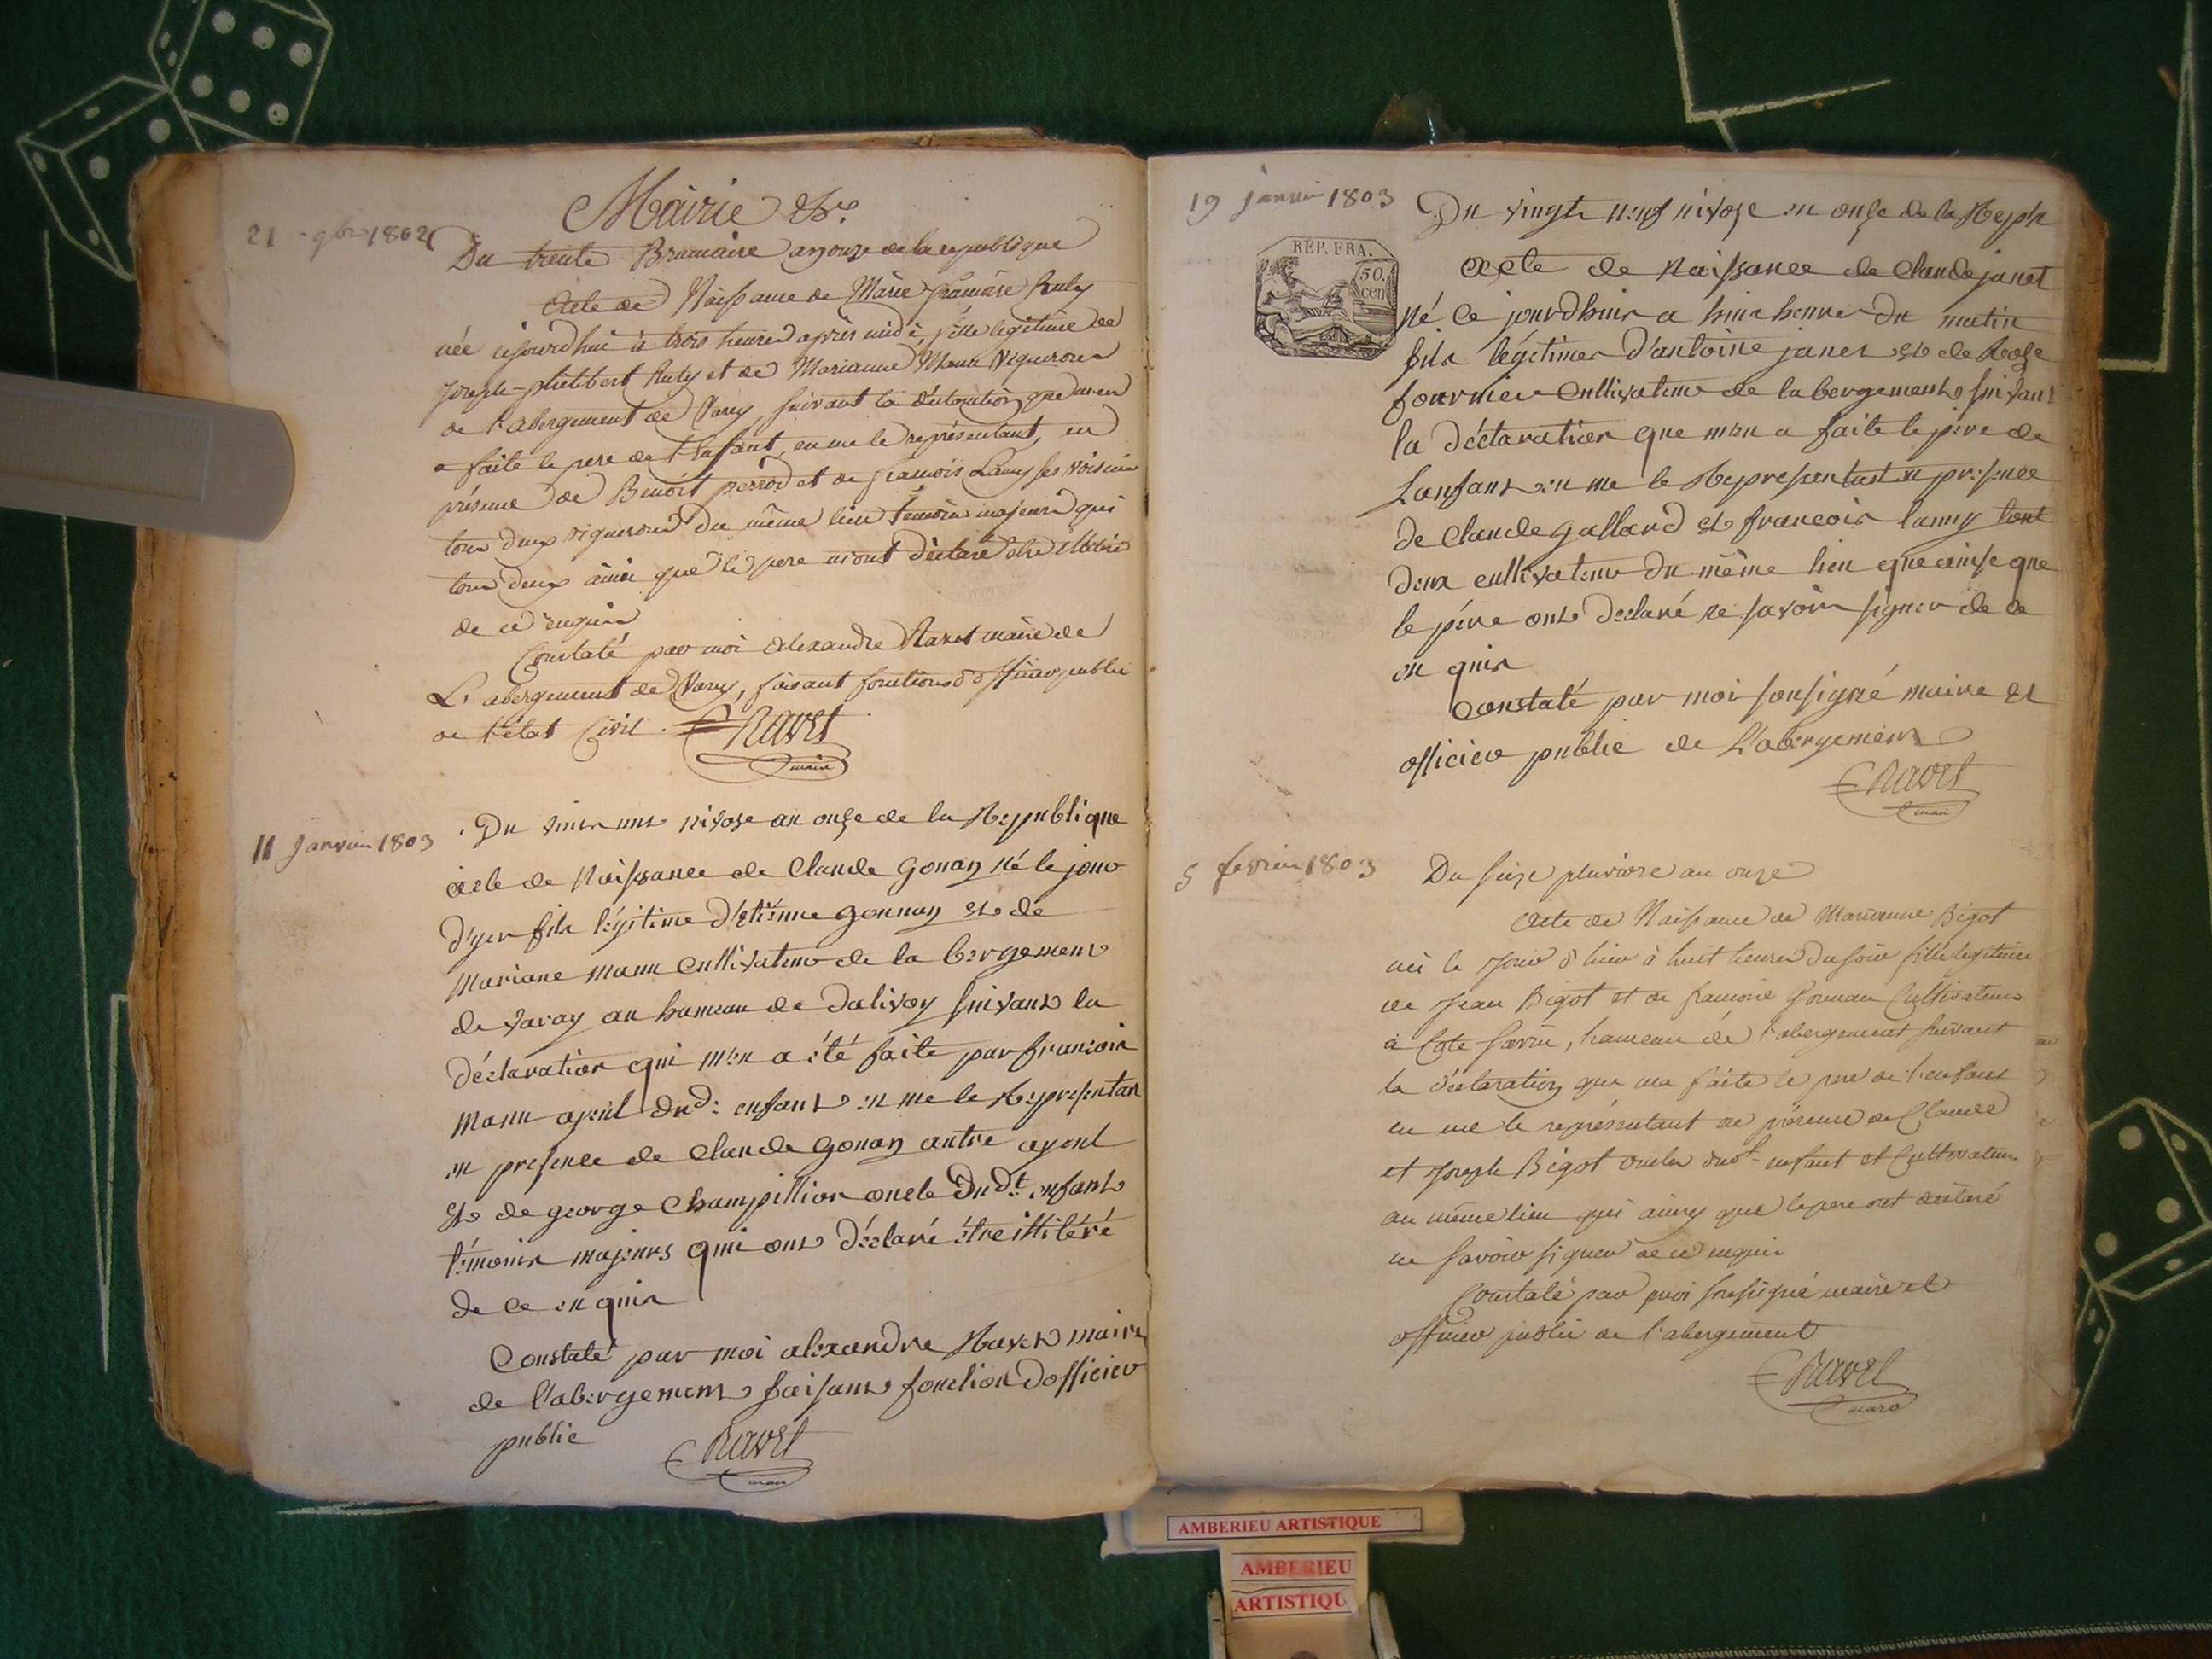 21 9bre 1802
Mairie &re
Du trente Brumaire an onze de la republique
Acte de Naissance de Marie françoise Ruly
née cejourd'hui à trois heures après midi, fille legitime de
joseph-philibert Ruly et de Marianne Mann Vignerons
de l'abergement de Varey, suivant la déclaration que m'en
a faite le pere de l'Enfant, en me le représentant, en
présence de Benoit perrod et de françois Lamy ses voisins
tous deux vignerons du même lieu temoins majeurs qui
tous deux ainsi que le pere m'ont déclaré être illitéré
de ce enquis
Constaté par moi Alexandre Ravet maire de
L'abergement de Varey, faisant fonctions d'officier public
de l'état Civil. Ravet
maire
11 janvier 1803
Du vint une nivose an onze de la Republique
acte de Naissance de Claude Gonan né le jour
d'yer fils légitime d'étiénne gonnan et de
Mariane mann cultivateurs de la bergement
de varay au hameau de dalivoy suivant la
déclaration qui m'en a été faite par francois
mann ayeul dud: enfant en me le Representan
en presence de Claude Gonan autre ayeul
et de george Champillion oncle Dudt. enfant
témoins majeurs qui ont déclaré être illitéré
de ce en quis
Constaté par moi alexandre Ravet maire
de l'abergement faisant fonction dofficier
public
Ravet
maire
19 janvier 1803
REP. FRA.
50
cen
Du vingt neuf nivose en onze de la Repbl
acte de naissance de Claude janet
né ce jourdhuis a huis heures du matin
fils légitimes d'antoine janet et de Rose
fournier cultivateurs de labergement suivant
la déclaration que men a faite le pere de
Lanfant en me le Representant en presence
de Claude gallard et francois lamy tout
deux cultivateurs du même lieu que ainse que
le pére ont déclaré ne savoir signer de ce
en quis
Constaté par moi sousigné maire et
officier public de L'abergement
Ravet
maire
5 fevrier 1803
Du seize pluviose an onze
Acte de Naissance de Marianne Bigot
née le jour d'hier à huit heures du soir fille legitime
de Jean Bigot et de francoise Gonnan Cultivateurs
à Cote savin, hameau de l'abergement suivant
la déclaration que ma faite le pere de l'enfant
en me le représentant en présence de Claude
et joseph Bigot oncles dudt. enfant et Cultivateurs
au même lieu qui ainsy que le pere ont déclaré
ne savoir signer de ce enquis
Constaté par moi soussigné maire et
officier public de l'abergement
Ravet
maire
AMBERIEU ARTISTIQUE
AMBERIEU
ARTISTIQU